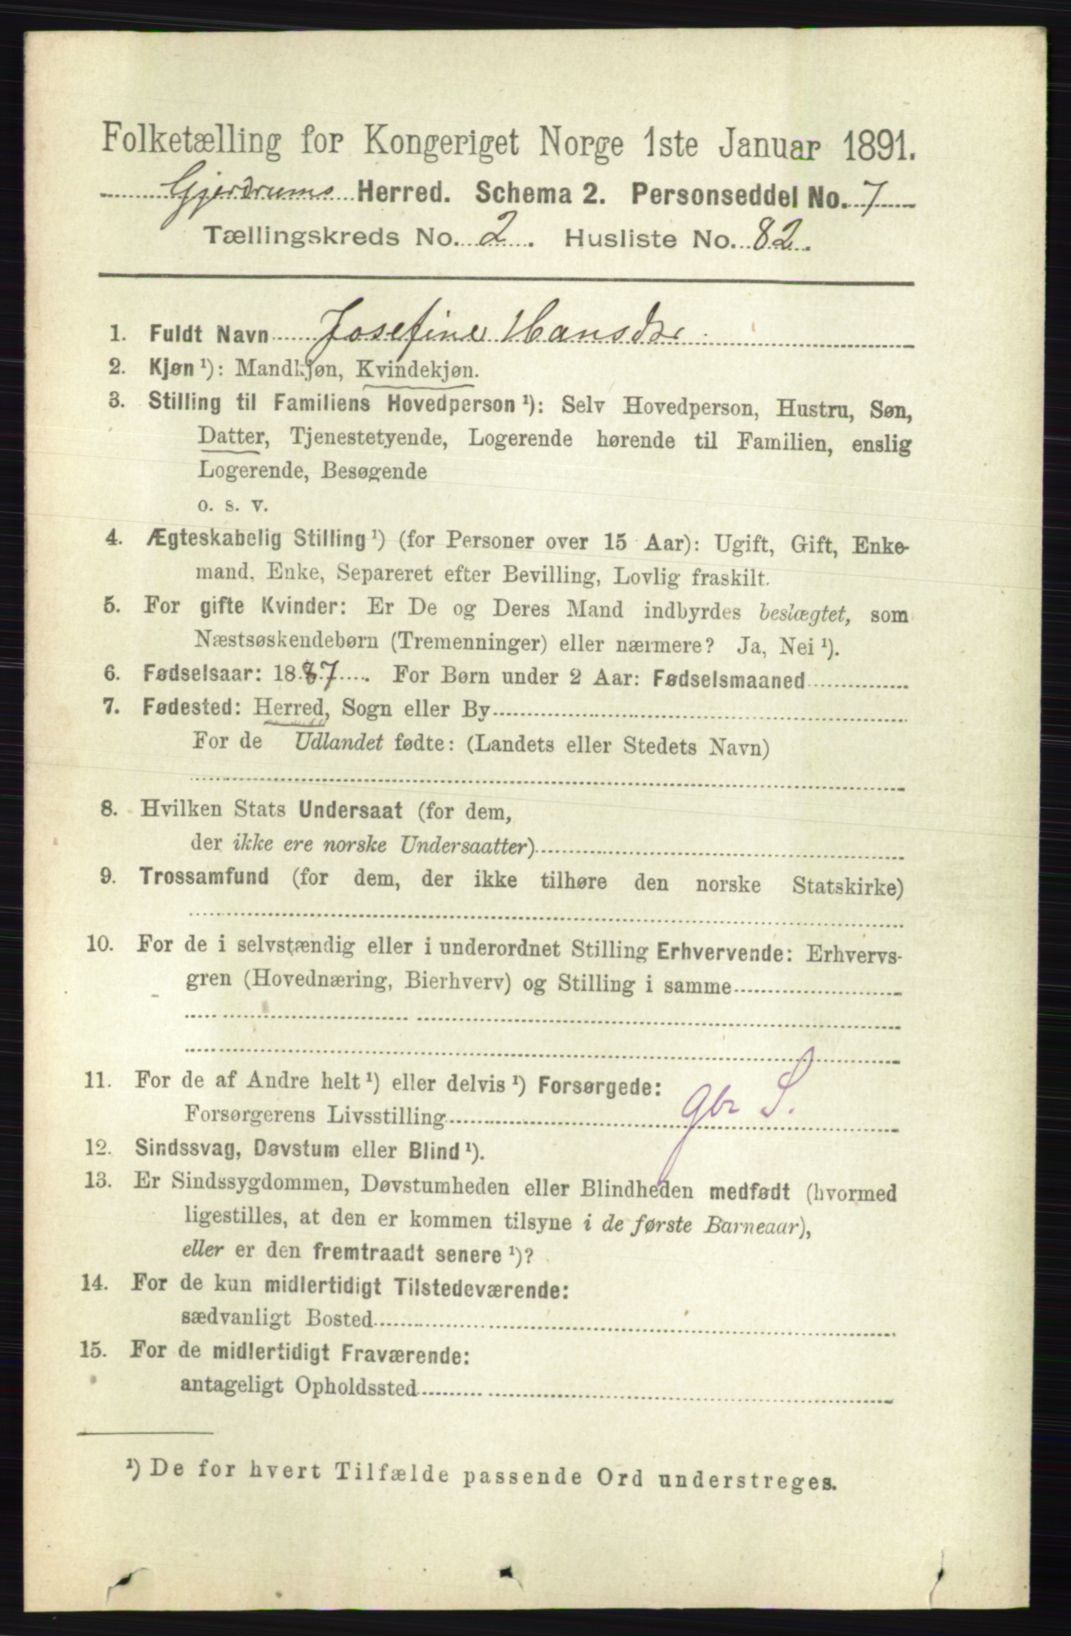 Folketælling for Kongeriget Norge 1ste Januar 1891.
Gjerdrums Herred. Schema 2. Personseddel No. 7
Tællingskreds No. 2. Husliste No. 82.
1. Fuldt Navn Josefine Hansdtr
2. Kjøn ¹): Mandkjøn, Kvindekjøn.
3. Stilling til Familiens Hovedperson ¹): Selv Hovedperson, Hustru, Søn,
Datter, Tjenestetyende, Logerende hørende til Familien, enslig
Logerende, Besøgende
o. s. v.
4. Ægteskabelig Stilling ¹) (for Personer over 15 Aar): Ugift, Gift, Enke-
mand, Enke, Separeret efter Bevilling, Lovlig fraskilt.
5. For gifte Kvinder: Er De og Deres Mand indbyrdes beslægtet, som
Næstsøskendebørn (Tremenninger) eller nærmere? Ja, Nei ¹).
6. Fødselsaar: 1887. For Børn under 2 Aar: Fødselsmaaned
7. Fødested: Herred, Sogn eller By
For de Udlandet fødte: (Landets eller Stedets Navn)
8. Hvilken Stats Undersaat (for dem,
der ikke ere norske Undersaatter)
9. Trossamfund (for dem, der ikke tilhøre den norske Statskirke)
10. For de i selvstændig eller i underordnet Stilling Erhvervende: Erhvervs-
gren (Hovednæring, Bierhverv) og Stilling i samme
11. For de af Andre helt ¹) eller delvis ¹) Forsørgede:
Forsørgerens Livsstilling gbr S.
12. Sindssvag, Døvstum eller Blind ¹).
13. Er Sindssygdommen, Døvstumheden eller Blindheden medfødt (hvormed
ligestilles, at den er kommen tilsyne i de første Barneaar),
eller er den fremtraadt senere ¹)?
14. For de kun midlertidigt Tilstedeværende:
sædvanligt Bosted
15. For de midlertidigt Fraværende:
antageligt Opholdssted
¹) De for hvert Tilfælde passende Ord understreges.